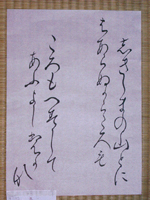 志きしまの山とに
はあらぬからころも
ころもへずして
あふよしもが
な